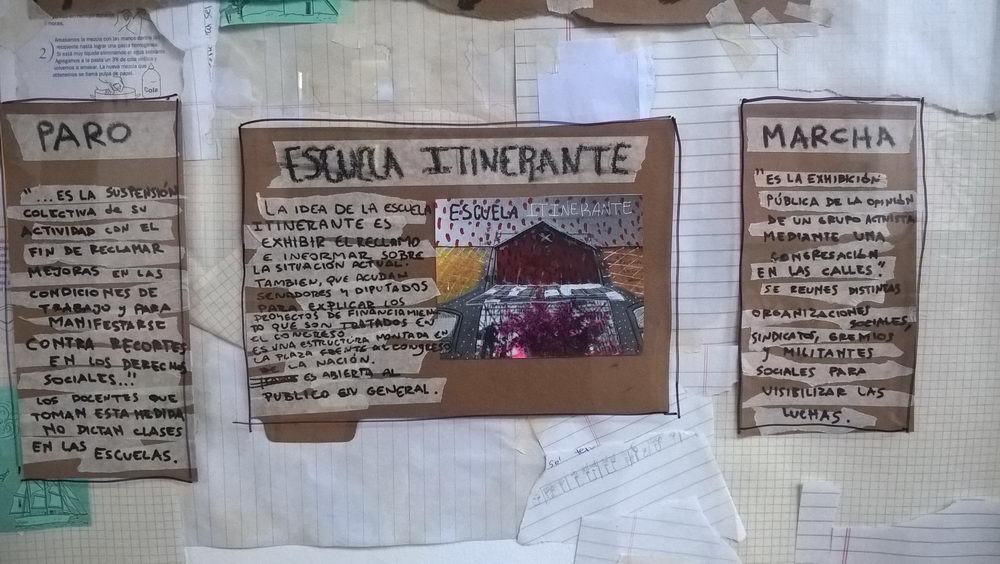 horas.
2) Amasamos la mezcla con las manos dentro del
recipiente hasta lograr una pasta homogénea.
Si está muy líquida eliminamos el agua sobrante.
Agregamos a la pasta un 3% de cola vinílica y
volvemos a amasar. La nueva mezcla que
obtenemos se llama pulpa de papel.
Cola
PARO
"...ES LA SUSPENSIÓN
COLECTIVA de SU
ACTIVIDAD CON EL
FIN DE RECLAMAR
MEJORAS EN LAS
CONDICIONES DE
TRABAJO Y PARA
MANIFESTARSE
CONTRA RECORTES
EN LOS DERECHOS
SOCIALES..."
LOS DOCENTES QUE
TOMAN ESTA MEDIDA
NO DICTAN CLASES
EN LAS ESCUELAS.
ESCUELA ITINERANTE
LA IDEA DE LA ESCUELA
ITINERANTE ES
EXHIBIR EL RECLAMO
E INFORMAR SOBRE
LA SITUACIÓN ACTUAL.
TAMBIEN, QUE ACUDAN
SENADORES Y DIPUTADOS
PARA EXPLICAR LOS
PROYECTOS DE FINANCIAMIEN
TO QUE SON TRATADOS EN
EL CONGRESO
ES UNA ESTRUCTURA MONTADA EN
LA PLAZA FRENTE AL CONGRESO
DE LA NACIÓN.
ES ABIERTA AL
PUBLICO EN GENERAL.
ESCUELA ITINERANTE
MARCHA
"ES LA EXHIBICIÓN
PÚBLICA DE LA OPINIÓN
DE UN GRUPO ACTIVISTA
MEDIANTE UNA
CONGREGACIÓN
EN LAS CALLES".
SE REUNES DISTINTAS
ORGANIZACIONES
SOCIALES,
SINDICATOS, GREMIOS
Y MILITANTES
SOCIALES PARA
VISIBILIZAR LAS
LUCHAS.